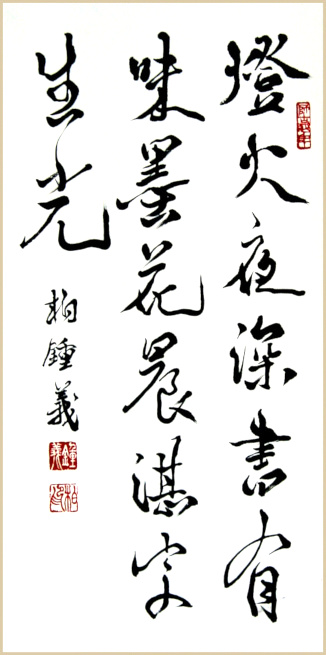 燈火夜深書有
味墨花晨湛字
生光
柏鍾義
鍾義